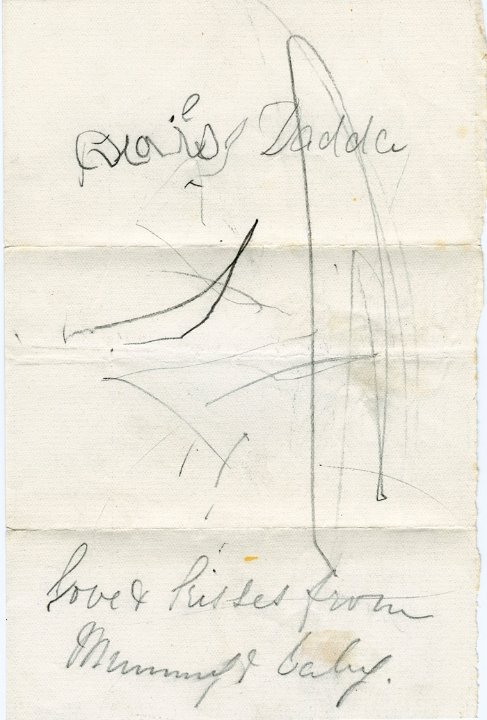 Dadda
Love & kisses from
Mummy & baby.